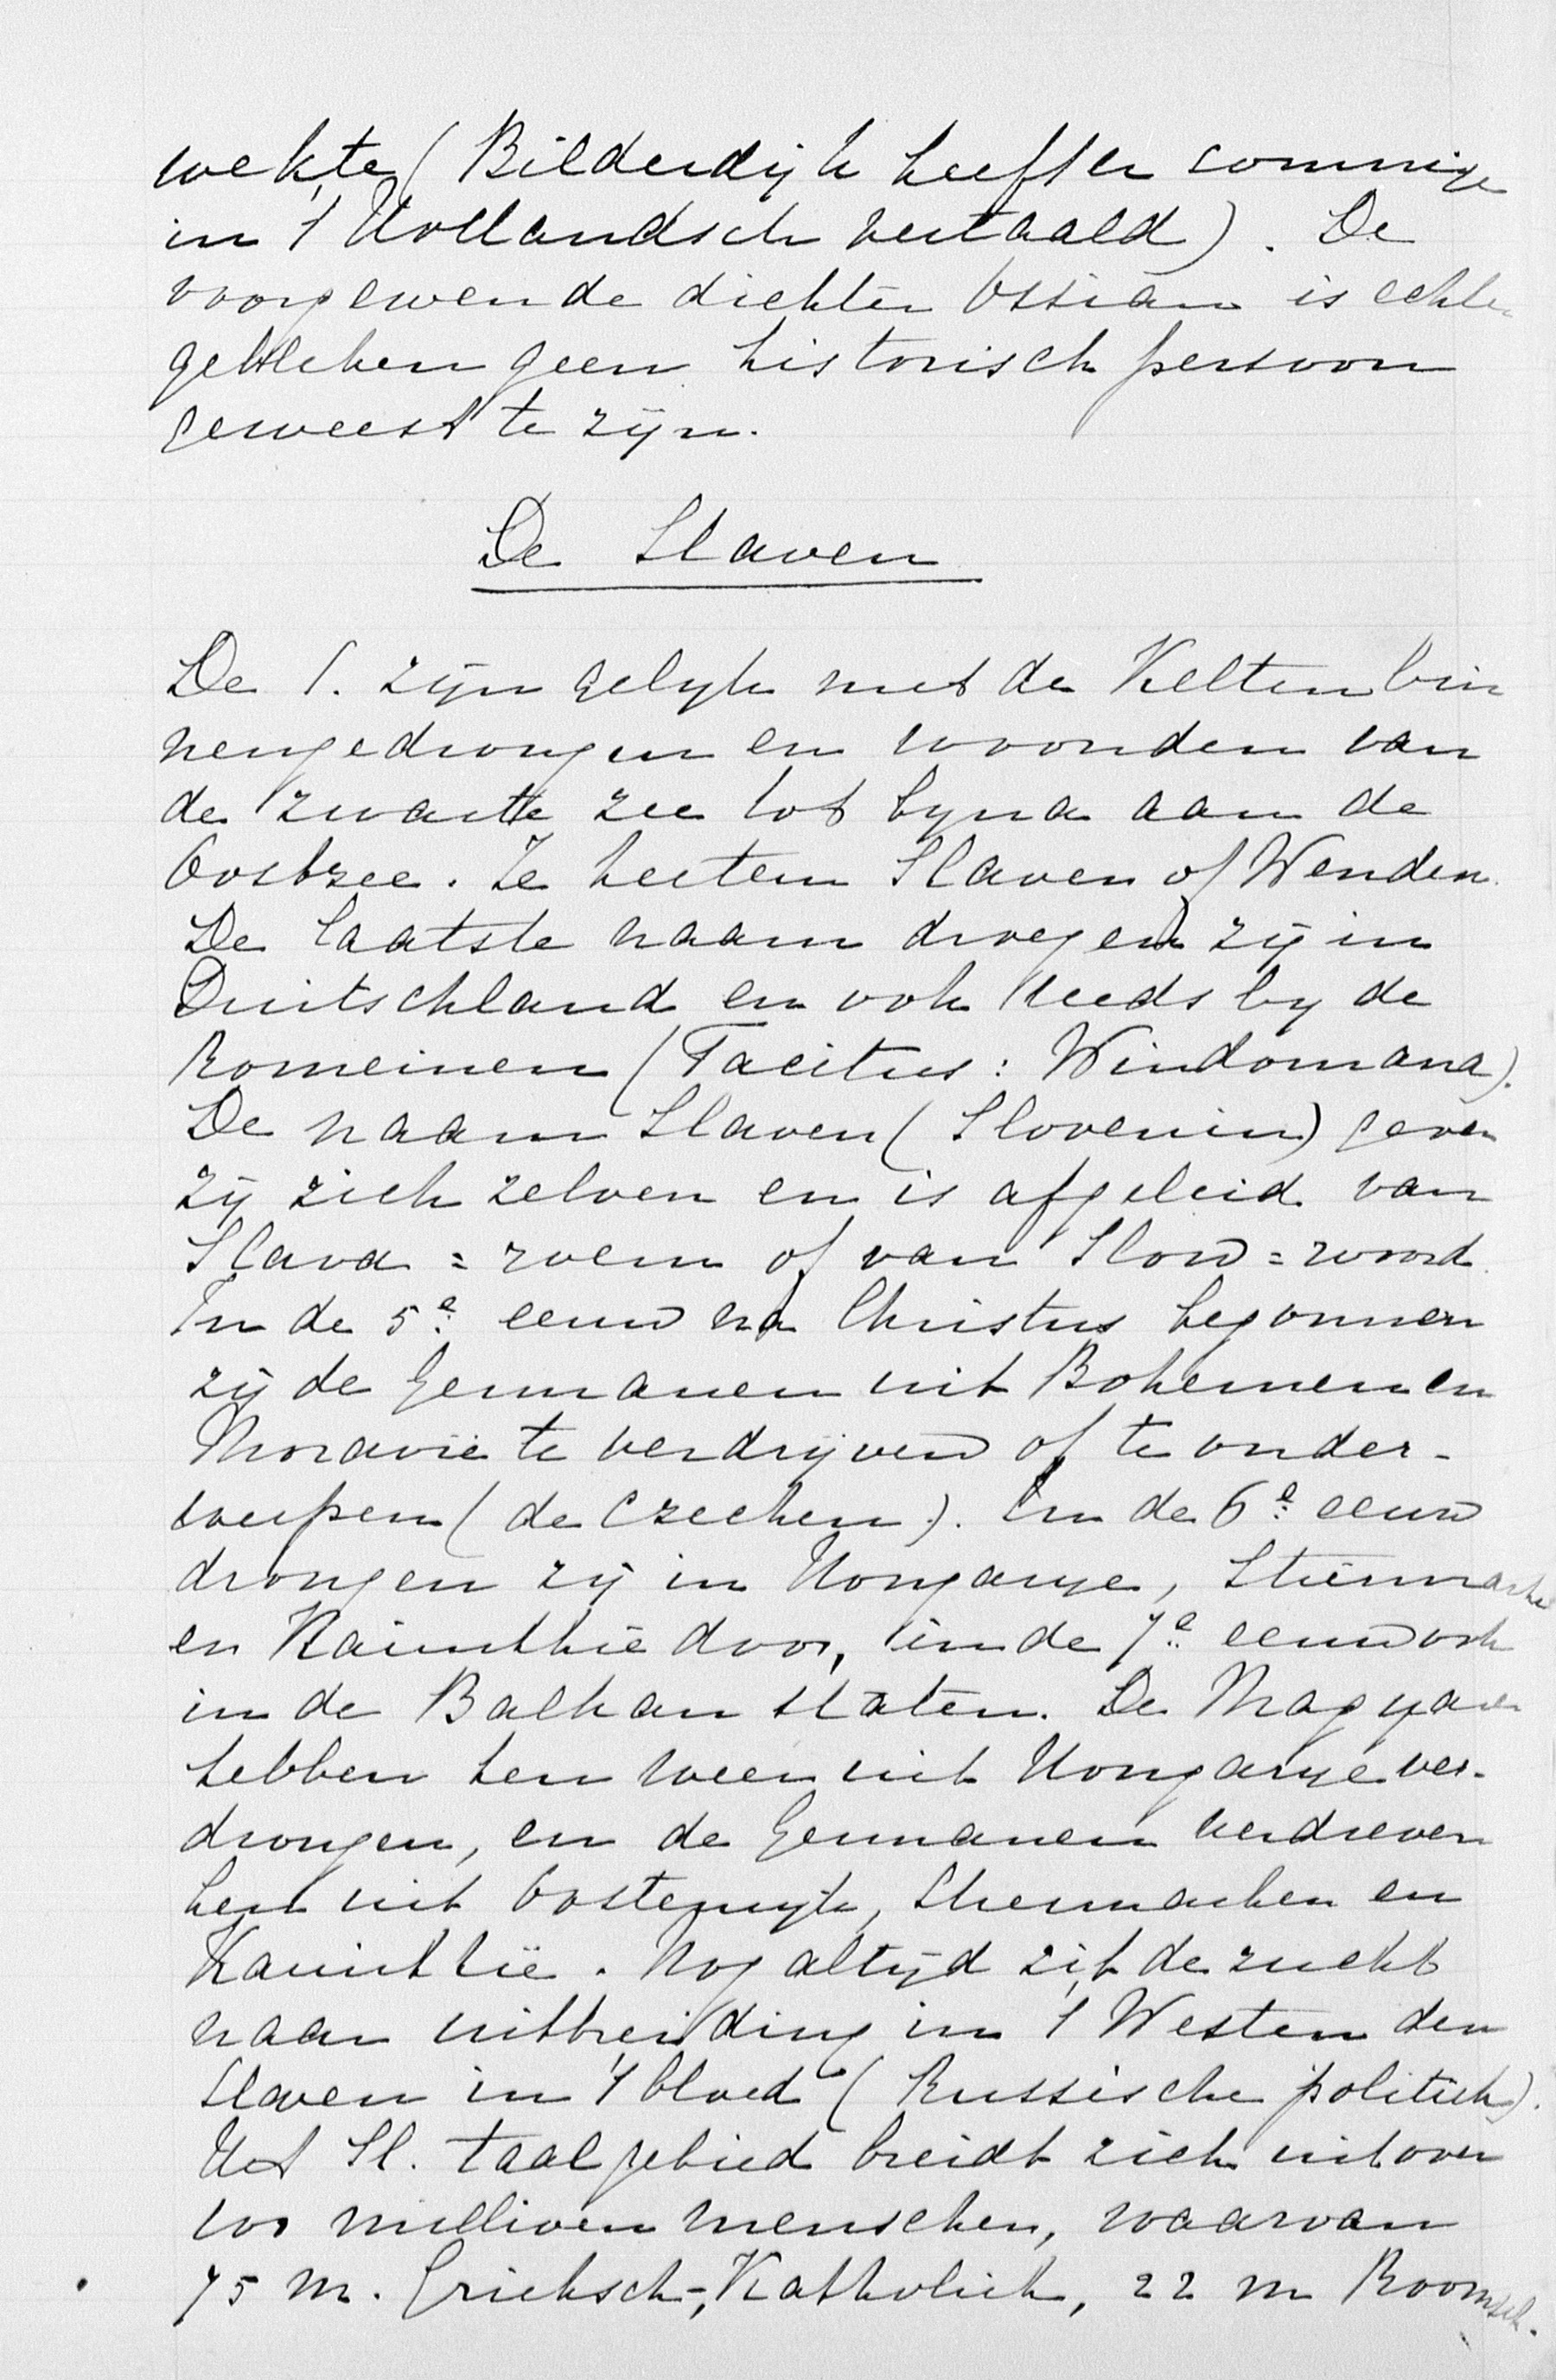 wekte (Bilderdijk heeft er sommige
in 't Hollandsch vertaald). De
voorgewende dichter Ossian is echter
gebleken geen historisch persoon
geweest te zijn.
De Slaven
De S. zijn gelijk met de Kelten bin
nengedrongen en woonden van
de zwarte zee tot byna aan de
Oostzee. Ze heeten Slaven of Wenden.
De laatste naam droegen zij in
Duitschland en ook reeds by de
Romeinen (Tacitus: Windomana).
De naam Slaven (Slovenin) geven
zij zich zelven en is afgeleid van
Slava = roem of van Slow = woord.
In de 5e eeuw na Christus begonnen
zij de Germanen uit Bohemen en
Moravië te verdrijven of te onder-
werpen (de Czechen). In de 6e eeuw
drongen zij in Hongarye, Stiermarke
en Karinthië door, in de 7e eeuw ook
in de Balkan staten. De Magyaren
hebben hen weer uit Hongarye ver-
drongen, en de Germanen verdreven
hen uit Oostenryk, Stiermarken en
Karinthië. Nog altyd zit de zucht
naar uitbreiding in 't Westen den
Slaven in 't bloed (Russische politiek).
Het Sl. taalgebied breidt zich uit over
100 millioen menschen, waarvan
75 m. Grieksch-Katholiek, 22 m Roomsch.